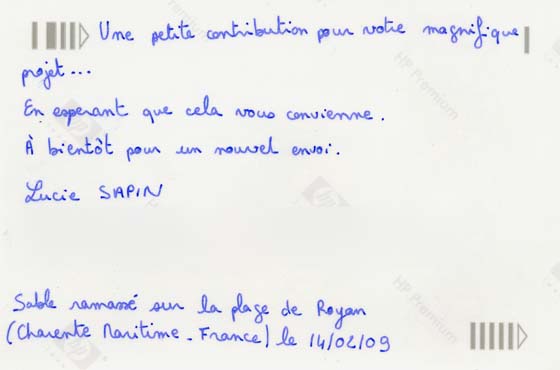 Une petite contribution pour votre magnifique
projet...
En esperant que cela vous convienne.
À bientôt pour un nouvel envoi.
Lucie SAPIN
Sable ramassé sur la plage de Royan
(Charente Maritime - France) le 14/02/09
HP Premium
HP Premium